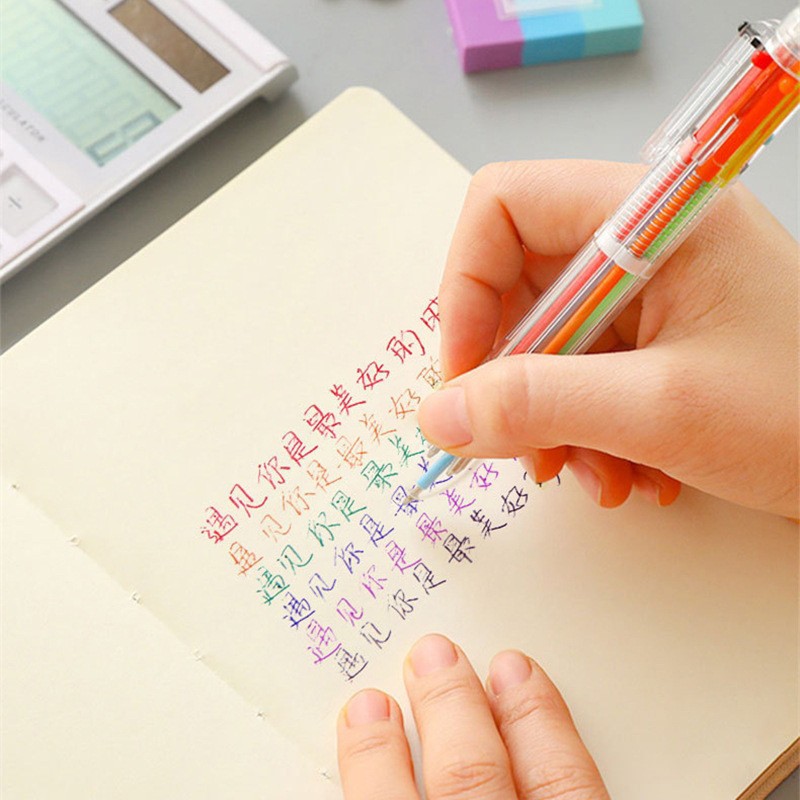 遇见你是最美好的时
遇见你是最美好的
遇见你是最美
遇见你是最
遇见你是最美好
遇见你是最美好的
CULATOR